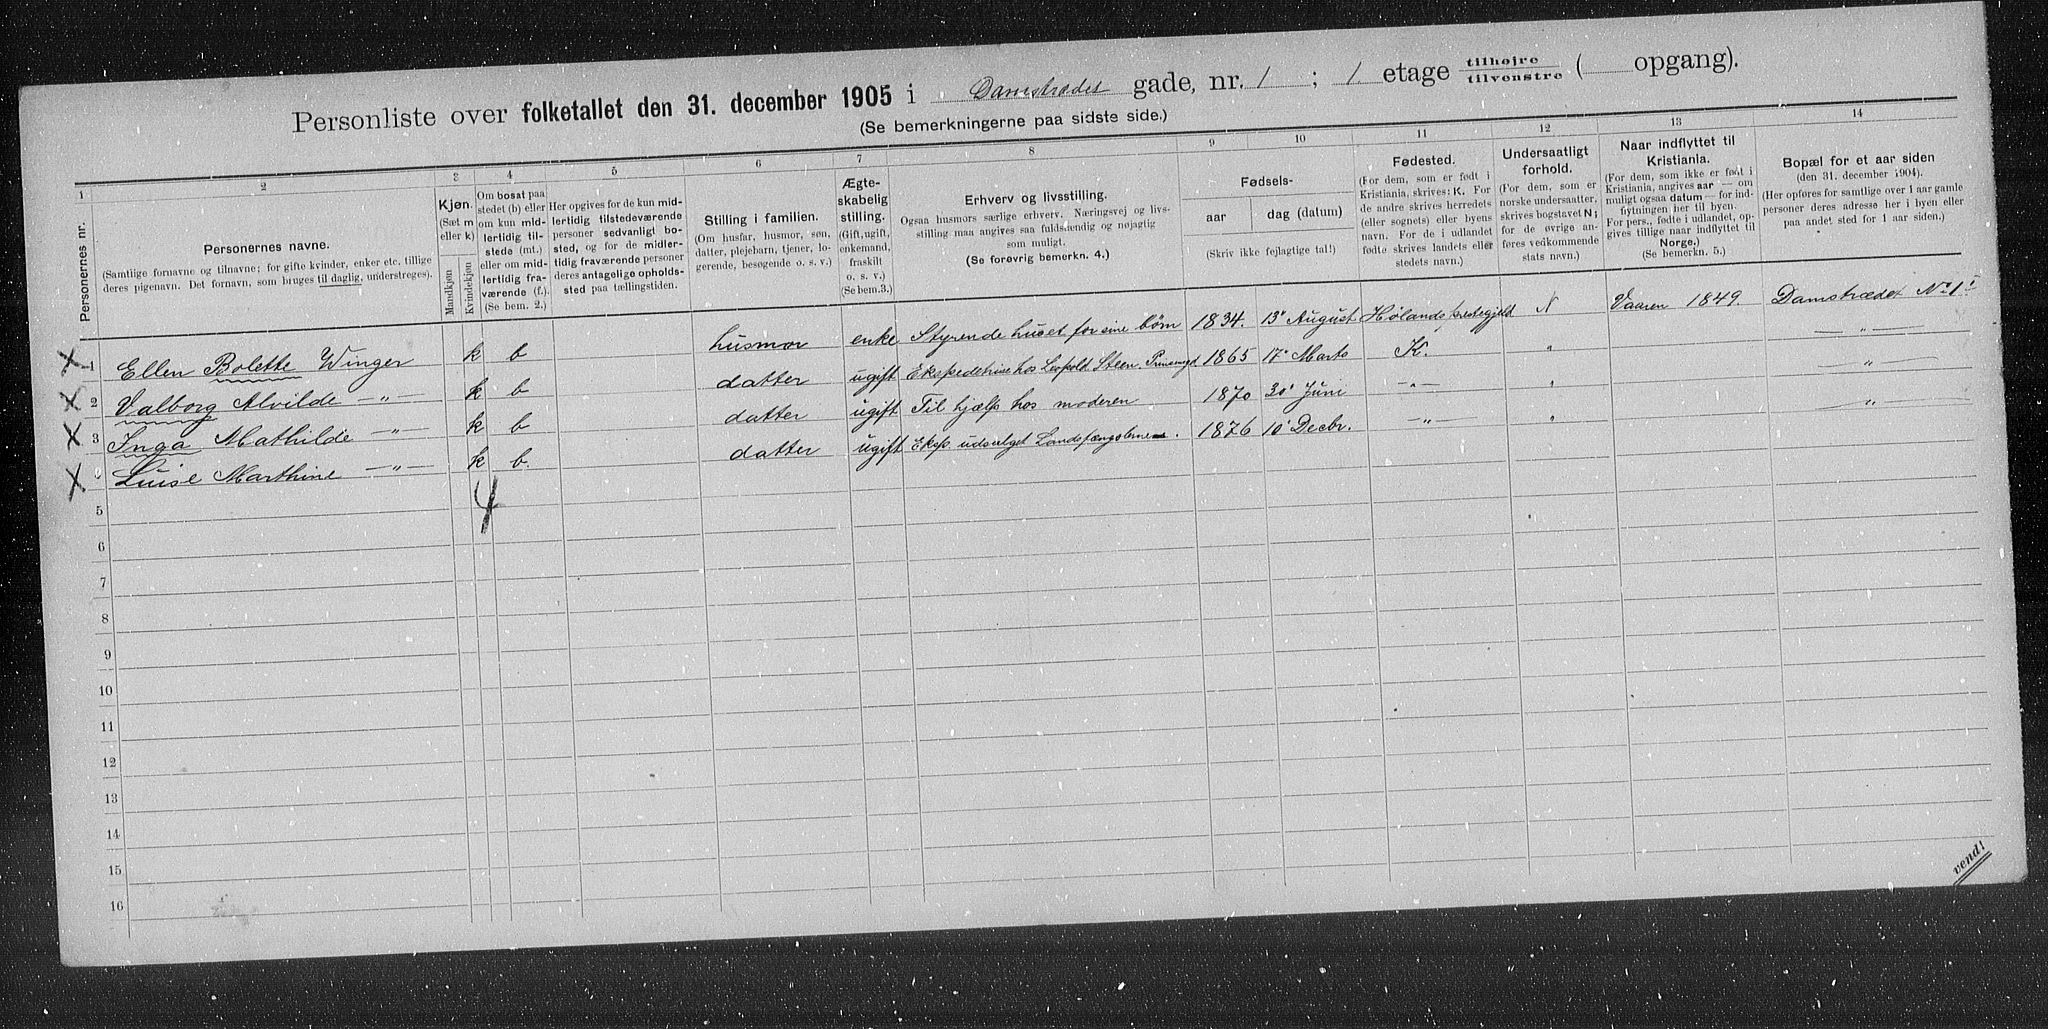 Personliste over folketallet den 31. december 1905 i Damstrædet gade, nr. 1 ; 1. etage tilhøjre tilvenstre ( opgang).
(Se bemerkningerne paa sidste side.)
1 2 3 4 5 6 7 8 9 10 11 12 13 14
Personernes nr.
Personernes navne.
(Samtlige fornavne og tilnavne; for gifte kvinder, enker etc. tillige
deres pigenavn. Det fornavn, som bruges til daglig, understreges).
Kjøn.
(Sæt m
eller k)
Mandkjøn
Kvindekjøn
Om bosat paa
stedet (b) eller
om kun mid-
lertidig til-
stede (mt.)
eller om mid-
lertidig fra-
værende (f.)
(Se bem. 2.)
Her opgives for de kun mid-
lertidig tilstedeværende
personer sedvanligt bo-
sted, og for de midler-
tidig fraværende personer
deres antagelige opholds-
sted paa tællingstiden.
Stilling i familien.
(Om husfar, husmor, søn,
datter, plejebarn, tjener, lo-
gerende, besøgende o. s. v.)
Ægte-
skabelig
stilling.
(Gift, ugift,
enkemand,
fraskilt
o. s. v.)
(Se bem.3.)
Erhverv og livsstilling.
Ogsaa husmors særlige erhverv. Næringsvej og livs-
stilling maa angives saa fuldstændig og nøjagtig
som muligt.
(Se forøvrig bemerkn. 4.)
Fødsels-
aar dag (datum)
(Skriv ikke fejlagtige tal!)
Fødested.
(For dem, som er født i
Kristiania, skrives: K. For
de andre skrives herredets
(eller sognets) eller byens
navn. For de i udlandet
fødte skrives landets eller
stedets navn.)
Undersaatligt
forhold.
(For dem, som er
norske undersaatter,
skrives bogstavet N;
for de øvrige an-
føres vedkommende
stats navn.)
Naar indflyttet til
Kristiania.
(For dem, som ikke er født i
Kristiania, angives aar — om
muligt ogsaa datum — for ind-
flytningen her til byen.
For pers., fødte i udlandet, op-
gives tillige naar indflyttet til
Norge.)
(Se bemerkn. 5.)
Bopæl for et aar siden
(den 31. december 1904).
(Her opføres for samtlige over 1 aar gamle
personer deres adresse her i byen eller
paa andet sted for 1 aar siden.)
X 1 Ellen Bolette Winger k b husmor enke Styrende huset for sine børn 1834. 13' August Hølands prestegjeld N Vaaren 1849. Damstrædet No 1'
X 2 Valborg Alvilde — " — k b datter ugift Ekspeditrice hos Leopold Steen. 1865 17' Marts K. " — " —
X 3 Inga Mathilde — " — k b datter ugift Til hjælp hos moderen 1870 30' Juni — " — " — " —
X Luise Marthine — " — k b. datter ugift Eksp. udsalget 1876 10' Decbr. — " — " — " —
4
5
6
7
8
9
10
11
12
13
14
15
16
vend!